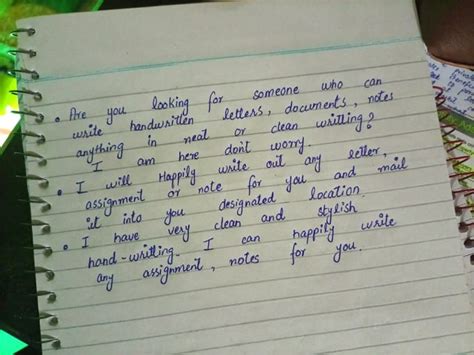 • Are you looking for someone who can
write handwritten letters, documents, notes
anything in neat or clean writting?
I am here dont worry.
• I will Happily write out any letter,
assignment or note for you and mail
it into you designated location.
• I have very clean and stylish
hand-writting. I can happily write
any assignment, notes for you.